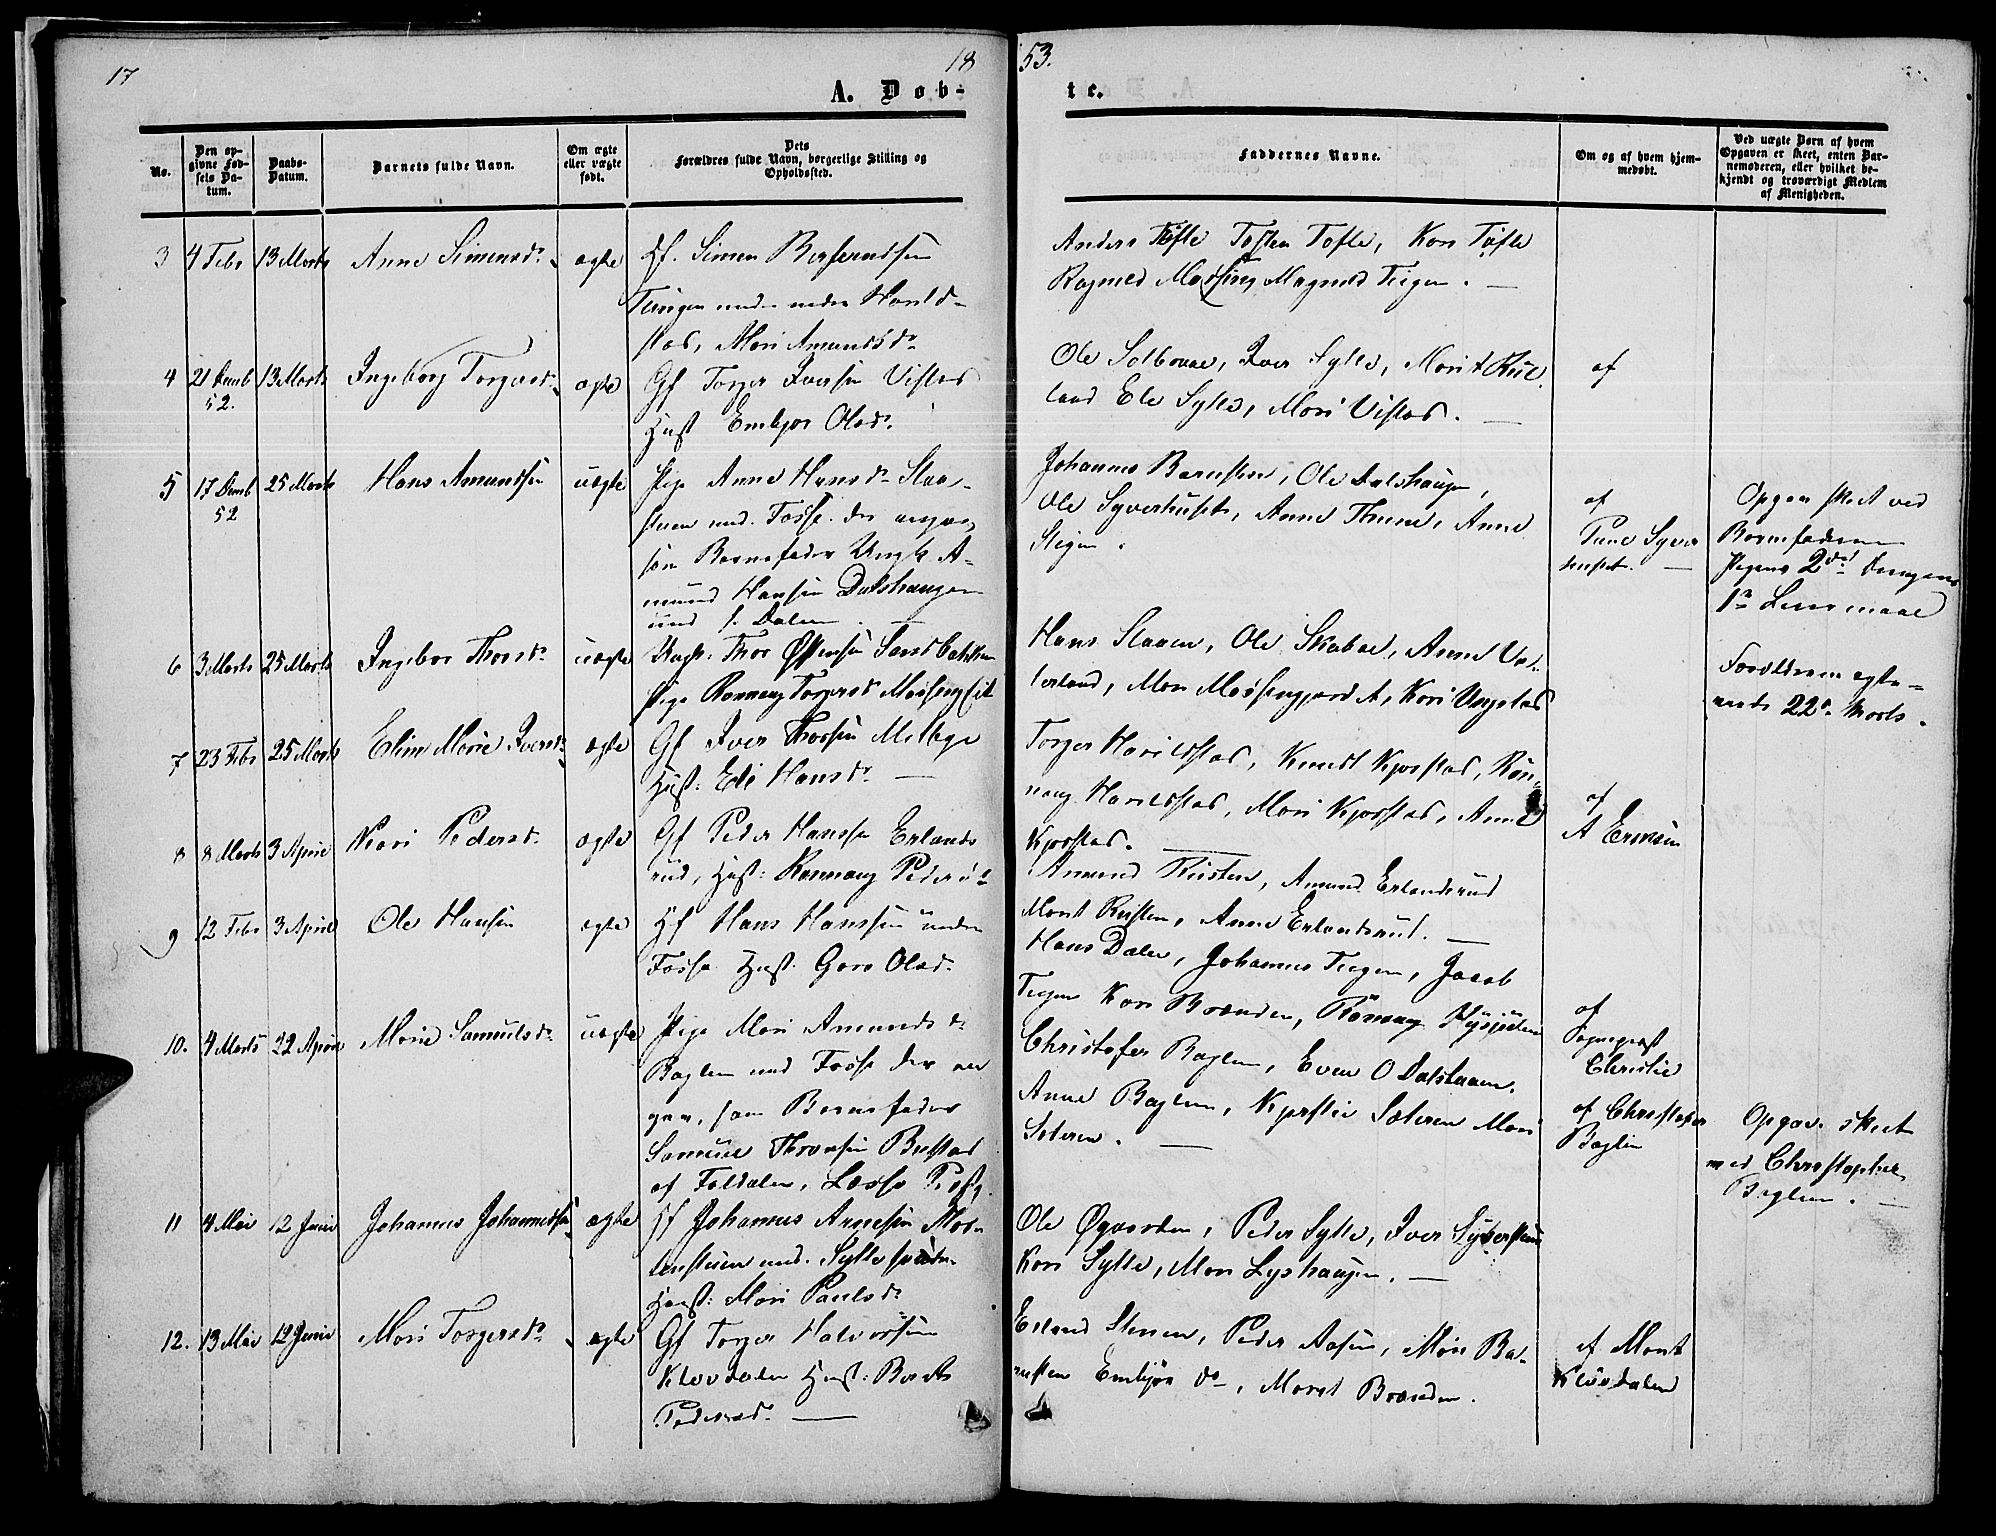 17
18
53.
A. Døb-
te.
No.
Den op-
givne Fød-
sels Da-
tum.
Daabs-
Datum.
Barnets fulde Navn.
Om ægte
eller uægte
født.
Dets
Forældres fulde Navn, borgerlige Stilling og
Opholdssted.
Faddernes Navne.
Om og af hvem hjem-
medøbt.
Ved uægte Børn af hvem
Opgaven er skeet, enten Bar-
nemoderen, eller hvilket be-
kjendt og troværdigt Medlem
af Menigheden.
3 4 Febr 13 Marts Anne Simensdr. ægte Hf. Simen
Teigen under nedre Harild-
stad, Mari Amundsdr
Anders Tofte Tosten Tofte, Kari Tofte
Ragnild Magnild Teigen. —
4 21 Decmb 52. 13 Marts Ingeborg Torgersdr. ægte Gf Torger Iversen Vistad
Hust Embjør Olsdr.
Ole Solbraae, Iver Sylte, Marit
land Ele Sylte, Mari Vistad. —
af
5 17 Decmb 52 25 Marts Hans Amundsen uægte Pige Anne Hansdr Slaa-
stuen und. Fosse. der angav
som Barnefader Ungk A-
mund Hansen Dalshaugen
und S. Dalen. —
Johannes , Ole Dalshaugen,
Ole Syverhuset, Anne , Anne
Steigen.
af
Syver
huset. —
Opgav skeet ved
Barnefaderen
Pigens 2det Drengens
1ste Leiermaal
6 3 Marts 25 Marts Ingebor Thorsdr uægte Ungk: Thor Sandbakken
Pige Rønnaug Torgersdr
Hans Slaaen, Ole Skabae, Anne
, Mari , Kari
Forældrene ægte-
viede 22de Marts.
7 23 Febr 25 Marts Elin Marie Iversdr. ægte Gf Iver Thorsen
Hust: Eli Hansdr. —
Torger Harildstad, Knudt Kjorstad, Røn-
naug Harildstad, Mari Kjorstad, Anne
Kjorstad. —
8 8 Marts 3 April Kari Pedersdr. ægte Gf Peder Hansen Erlands
rud, Hust: Rønnaug Pedersdr
Amund Rusten, Amund Erlandsrud
Marit Rusten, Anne Erlandsrud. —
af
A Eriksen
9 12 Febr 3 April Ole Hansen ægte Hf Hans Hanssen under
Fosse Hust. Goro Olsdr.
Hans Dalen, Johannes Teigen, Jacob
Teigen Kari Brænden, Rønnaug
10. 4 Marts 22 April Marie Samuelsdr. uægte Pige Mari Amundsdr
Baglien und Fosse der an
gav, som Barnefader
Samuel Thoresen
af Foldalen, Lessø Prstg.
Christofer Baglien, Even O Dalshaugen,
Anne Baglien, Kjerstie Sæteren Mari
Sæteren. —
af
Sognepræst
Christie
af Christofer
Baglien
Opgav. skeet
med Christopher
Baglien. —
11 4 Mai 12 Junii Johannes Johannessen ægte Hf Johannes Arnesen
Hust: Mari Paulsdr
Ole Øgaarden, Peder Sylte, Iver
Kari Sylte, Mari Lyshaugen. —
12. 13 Mai 12 Junii Mari Torgersdr ægte Gf Torger Halvorsen
Kløvdalen Hust: Berit
Pedersdr. —
Erland Stenen, Peder Aasen, Mari Ba-
rusten Embjør do, Marit Brænden.
af Marit
Kløvdalen